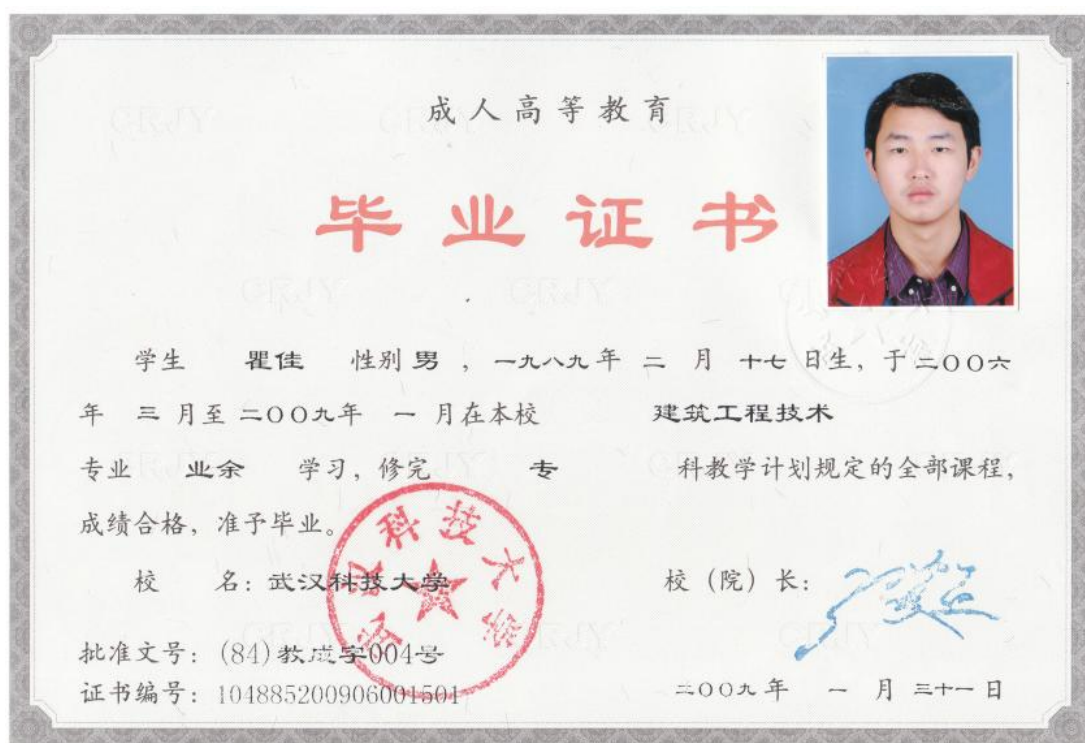 成人高等教育
毕业证书
学生 瞿佳 性别 男 ，一九八九年 二 月 十七 日生，于二〇〇六
年 三 月至 二〇〇九年 一 月在本校 建筑工程技术
专业 业余 学习，修完 专 科教学计划规定的全部课程，
成绩合格，准予毕业。
校 名：武汉科技大学 校（院）长：
武汉科技大学
批准文号：(84)教成字004号
证书编号：104885200906001501 二〇〇九年 一 月 三十一 日